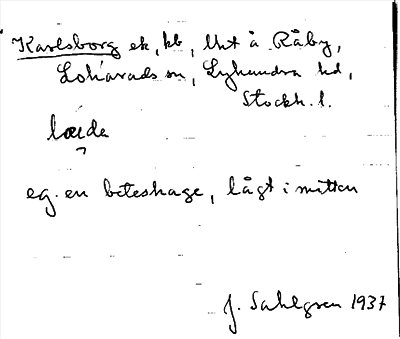 Karlsborg ek, kb, Unt å Råby,
Lohärads sn, Lyhundra hd,
Stockh. l.
eg. en beteshage, lågt i mitten
J. Sahlgren 1937